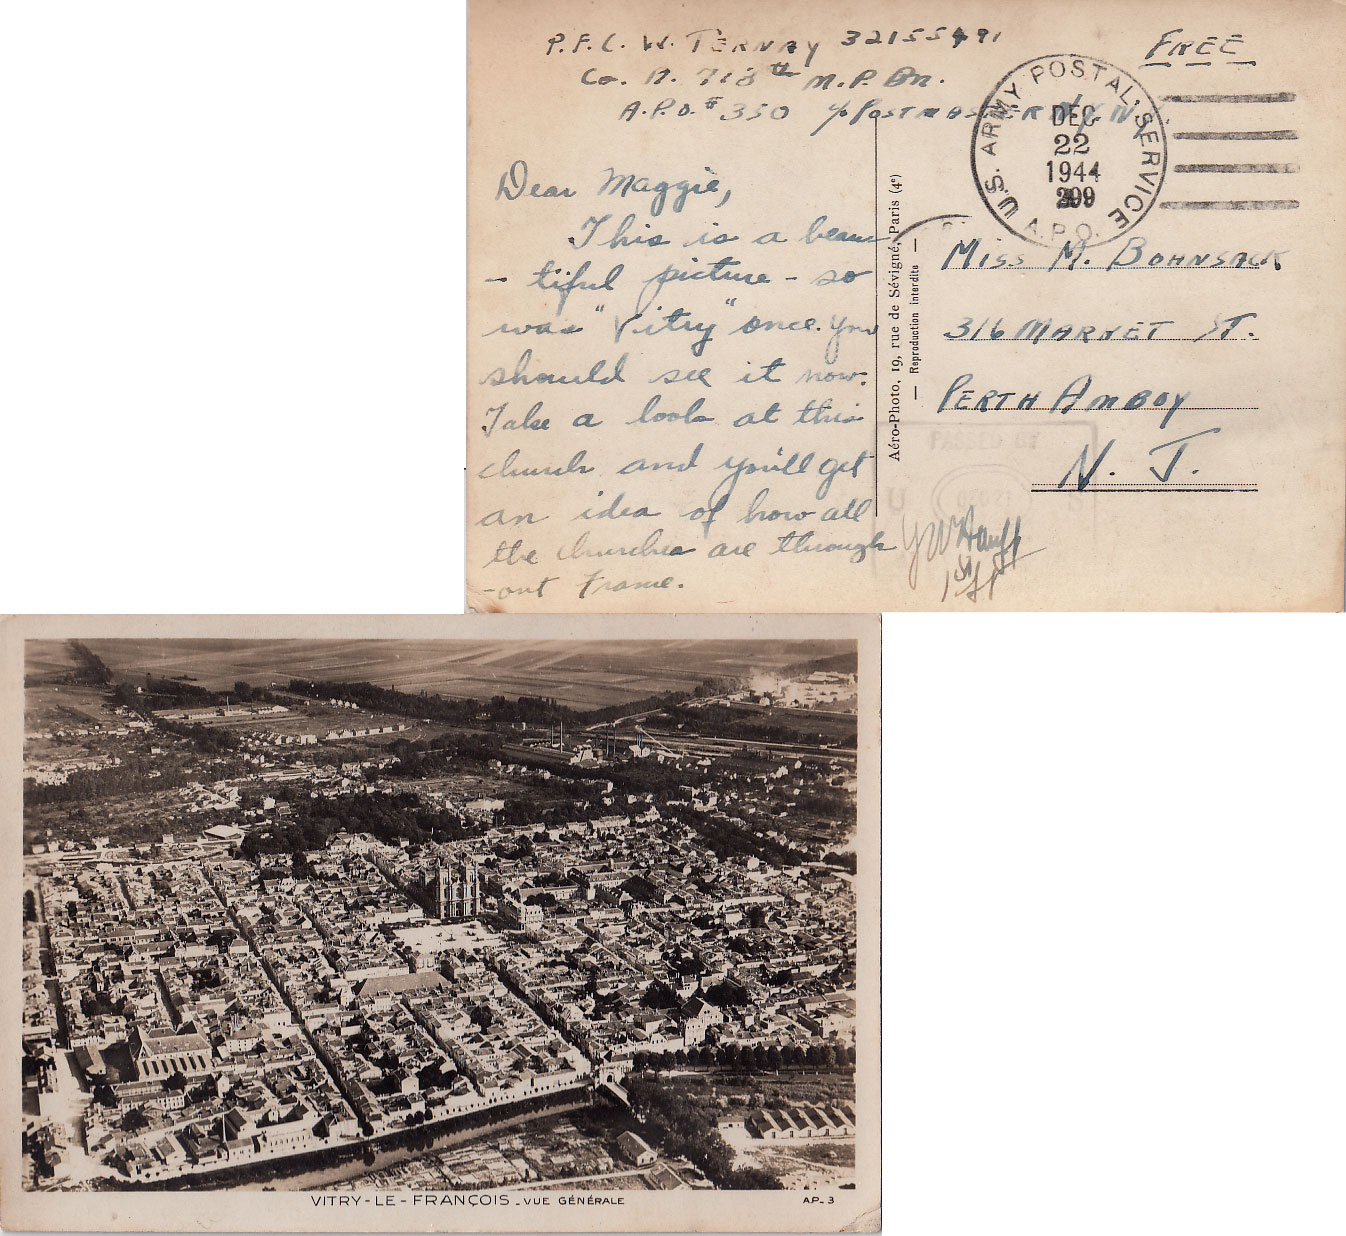 P.F.C. W. Ternay 32155491
Co. D. 713th M.P. Bn.
A.P.O. # 350 % Postmaster N.Y. N.Y.
Free
U.S. ARMY POSTAL SERVICE
DEC
22
1944
209
A.P.O.
Dear Maggie,
This is a beau
- tiful picture - so
was "Vitry" once. You
should see it now.
Take a look at this
church and you'll get
an idea of how all
the churches are through
-out France.
Aéro-Photo, 19, rue de Sévigné, Paris (4e)
— Reproduction interdite —
Miss M. Bohnsack
316 Market St.
Perth Amboy
N. J.
PASSED BY
U S
1st Lt
VITRY-LE-FRANÇOIS_VUE GÉNÉRALE
AP_3